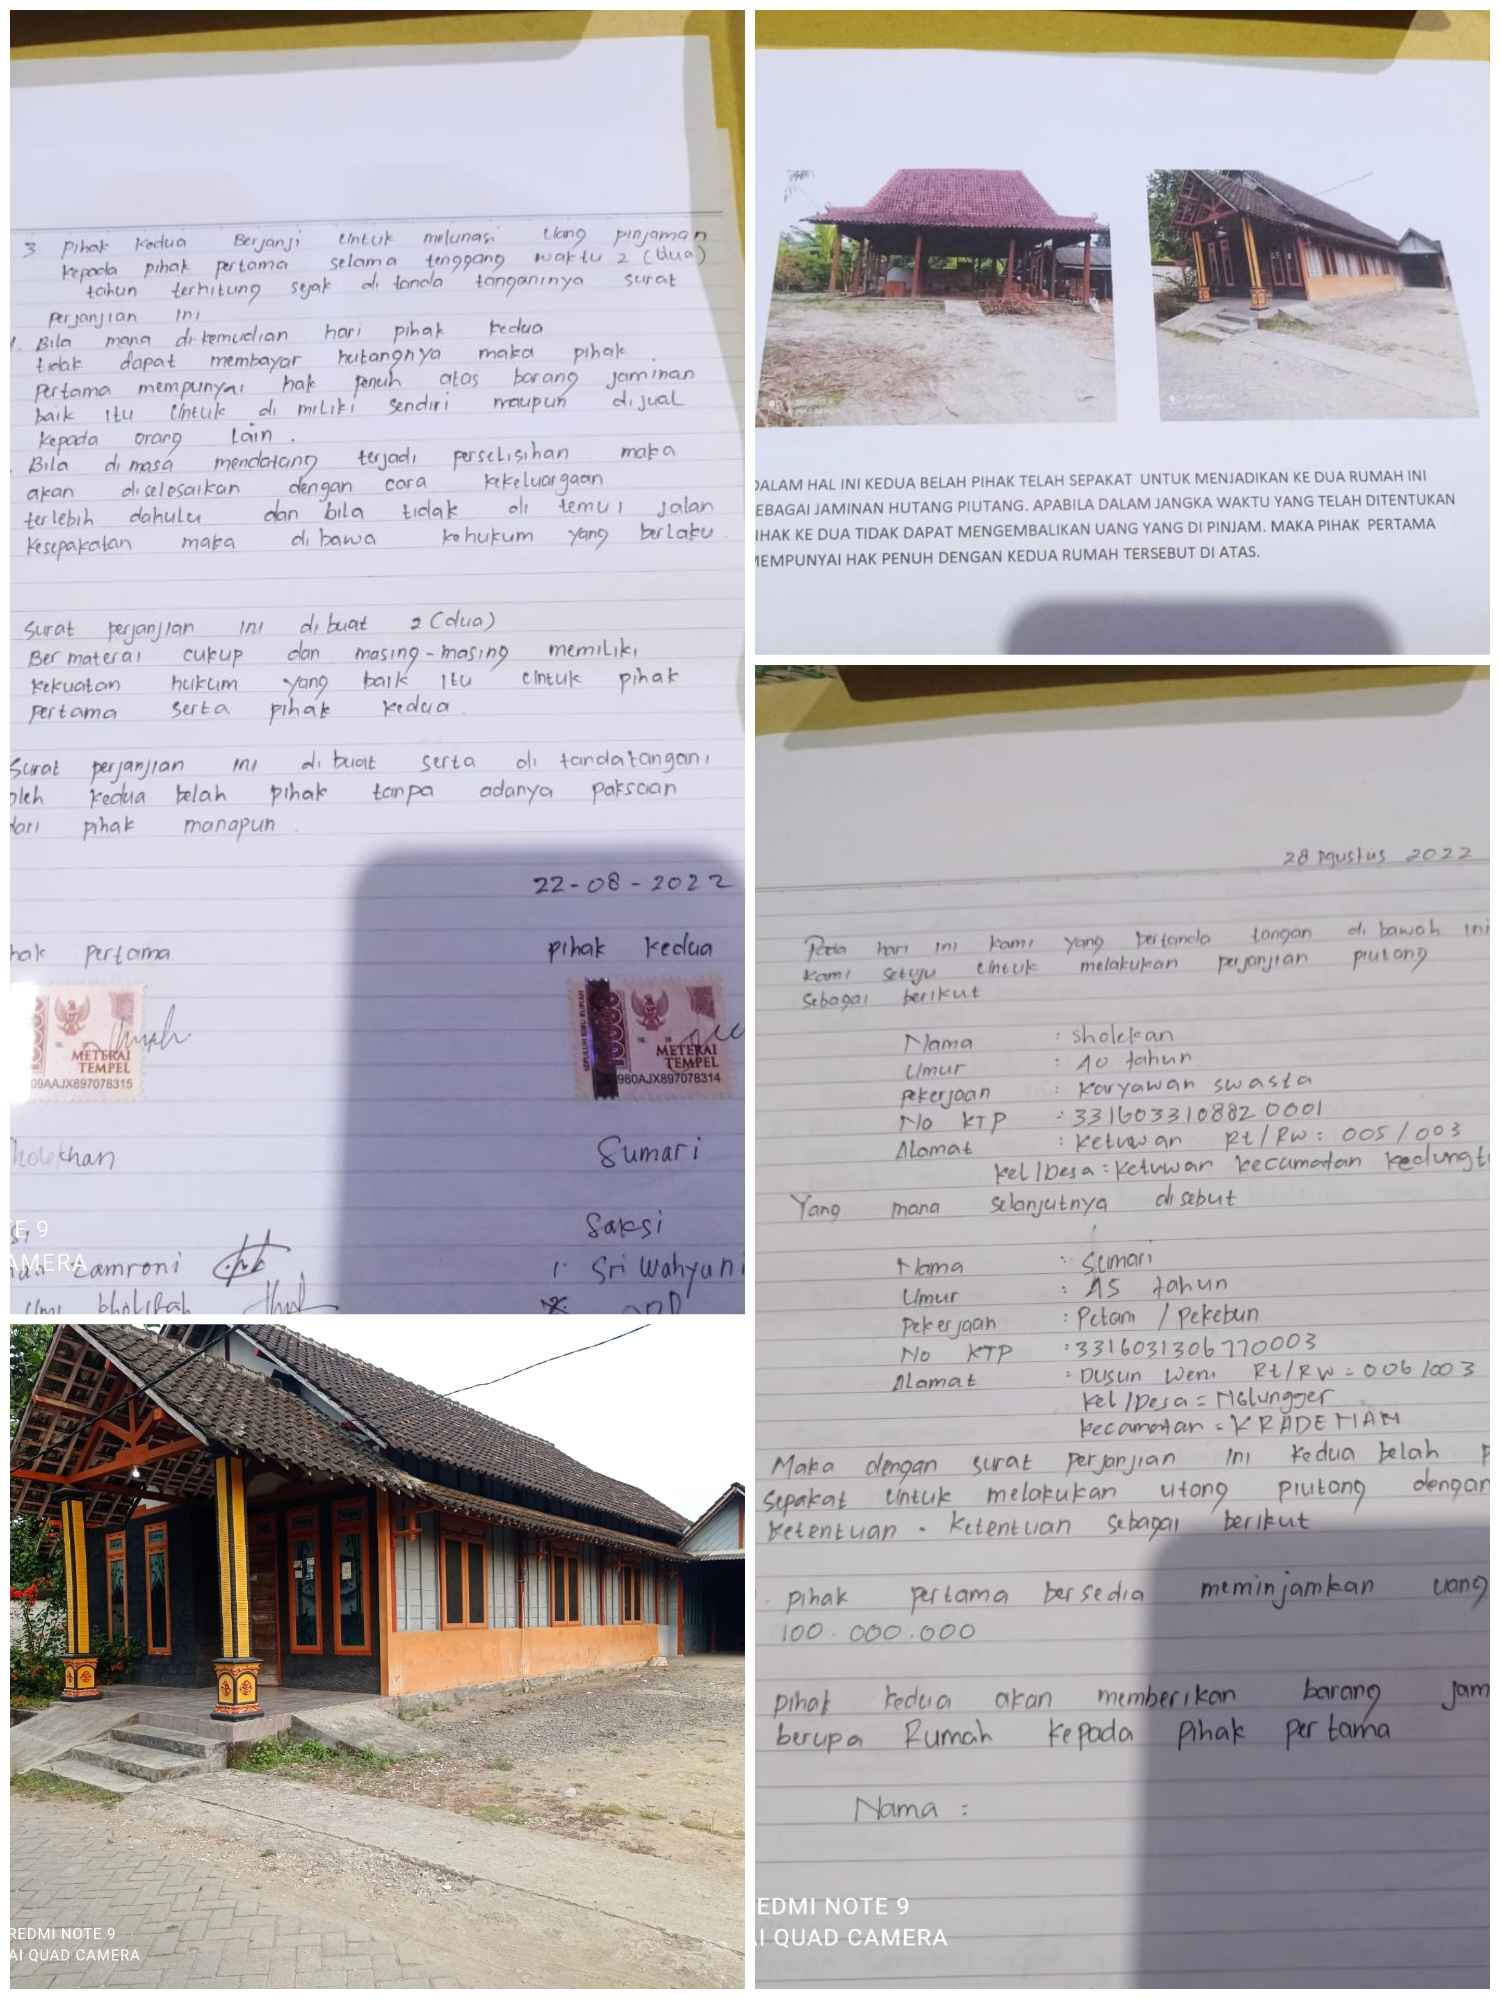 3 pihak kedua Berjanji Untuk melunasi Uang pinjaman
kepada pihak pertama selama tenggang waktu 2 (dua)
tahun terhitung sejak di tanda tanganinya surat
perjanjian ini
. Bila mana di kemudian hari pihak kedua
tidak dapat membayar hutangnya maka pihak
pertama mempunyai hak penuh atas barang jaminan
baik itu Untuk di miliki sendiri maupun dijual
kepada orang lain .
Bila di masa mendatang terjadi perselisihan maka
akan diselesaikan dengan cara kekeluargaan
terlebih dahulu dan bila tidak di temui jalan
kesepakatan maka di bawa kehukum yang berlaku
Surat perjanjian ini di buat 2 (dua)
Ber materai cukup dan masing-masing memiliki
kekuatan hukum yang baik itu Untuk pihak
pertama serta pihak kedua
Surat perjanjian ini di buat serta di tandatangani
oleh kedua belah pihak tanpa adanya paksaan
dari pihak manapun .
22-08-2022
hak pertama
pihak kedua
METERAI
TEMPEL
09AAJX897078315
SEPULUH RIBU RUPIAH
10000
METERAI
TEMPEL
980AJX897078314
holekhan
Sumari
Saksi
zamroni
1. Sri Wahyuni
DALAM HAL INI KEDUA BELAH PIHAK TELAH SEPAKAT UNTUK MENJADIKAN KE DUA RUMAH INI
EBAGAI JAMINAN HUTANG PIUTANG. APABILA DALAM JANGKA WAKTU YANG TELAH DITENTUKAN
IHAK KE DUA TIDAK DAPAT MENGEMBALIKAN UANG YANG DI PINJAM. MAKA PIHAK PERTAMA
MEMPUNYAI HAK PENUH DENGAN KEDUA RUMAH TERSEBUT DI ATAS.
28 Agustus 2022
Pada hari ini kami yang bertanda tangan di bawah ini
kami setuju Untuk melakukan perjanjian piutang
sebagai berikut
Nama : sholekan
Umur : 40 tahun
pekerjaan : karyawan swasta
No KTP : 3316033108820001
Alamat : ketuwan Rt/Rw: 005/003
kel/Desa = ketuwan kecamatan kedungt
Yang mana selanjutnya disebut
Nama : Sumari
Umur : 45 tahun
Pekerjaan : Petani / pekebun
No KTP : 3316031306770003
Alamat : Dusun Weni Rt/RW = 006/003
kel/Desa = Nglungger
kecamatan = KRADENAN
Maka dengan surat perjanjian ini kedua belah p
sepakat Untuk melakukan utang piutang dengan
ketentuan - ketentuan sebagai berikut
pihak pertama bersedia meminjamkan uang
100.000.000
pihak kedua akan memberikan barang jam
berupa Rumah kepada Pihak pertama
Nama :
REDMI NOTE 9
AI QUAD CAMERA
EDMI NOTE 9
AI QUAD CAMERA
TE 9
AMERA